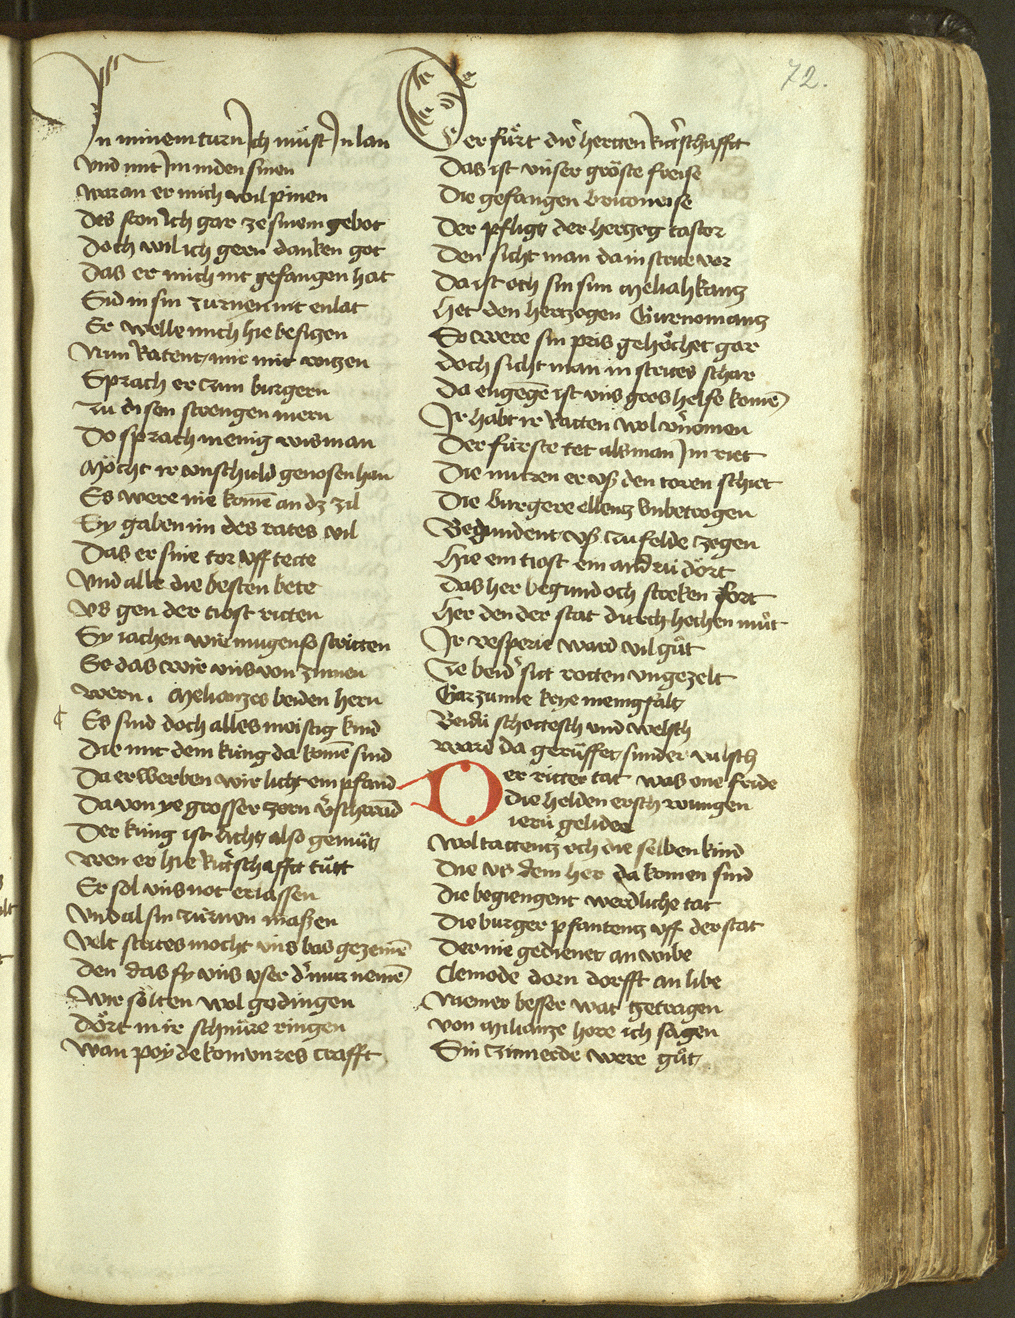 72.
In minem turn Ich muͤst In lan
Vnd mit Im in den sinen
waran er mich wil pinen
Des ston Ich gar ze sinem gebot
Doch wil ich gern danken got
Das er mich nit gefangen hat
Sid in sin zurnen nit enlat
Er welle mich hie besitzen
Nun Ratent mir mit witzen
Sprach er zum burgern
Zu disen strengen mern
Do sprach menig wis man
Moͤcht ir vnschuld genosen han
Es were nie komē an dz zil
Sy gaben im des rates vil
Das er sine tor vff tette
Vnd alle die besten bete
Vs gen der tiost ritten
Sy iachen wir mugen so stritten
Se das wir vns von zinnen
wern. Melianzes beiden hern
Es sind doch alles meistig kind
Die mit dem kúng da komē sind
Da erwerben wir licht ein pfand
Da von ye grosser zorn v̓schwand
Der kúng ist licht also gemuͤt
wen er hie Ritt̓schafft tuͤtt
Er sol vns not erlassen
Vnd al sin zúrnen maßen
Velt strites mocht vns bas gezemē
Den das sy vns vser d̓ mur nemē
wir sölten wol gedingen
Doͤrt in ir schnuͤre ringen
wan poydekomunzes crafft
Der fuͤrt die herten Ritt̓schafft
Das ist vnser gröste freise
Die gefangen brituneise
Der pfligt der hertzog castor
Den sicht man da in strite vor
Da ist och sin sun Meliahkantz
Het den hertzogen Gurnomantz
So were sin pris gehöchet gar
doch sicht man in strites schar
Da engegē ist vns gros helfe komē
Ir habt ir Ratten wol v̓nomen
Der fúrste tet als man Im riet
Die muren er vß den toren schiet
Die burgere ellentz vnbetrogen
Begundent vß zu felde zogen
Hie ein tiost ein andrú dört
Das her begund och stroken fort
Her den der stat durch hochen muͤt
Ir vesperie ward vil guͤt
Ze beid̓ sit rotten vngezelt
Garzunie kreie menigfalt
Beidú schottesch vnd welsch
ward da geruͤffet sunder valsch
Der ritter tat was one fride
die helden erschwungen
ierú gelider
Wol tattentz och die selben kind
Die vs dem her da komen sind
Die begiengent werdliche tat
Die burger pfantentz vff der stat
Der nie gedienet an wibe
Clenode dorn dorfft an libe
Niemer besser wat getragen
von Milianze hore ich sagen
Sin zimierde were guͤt